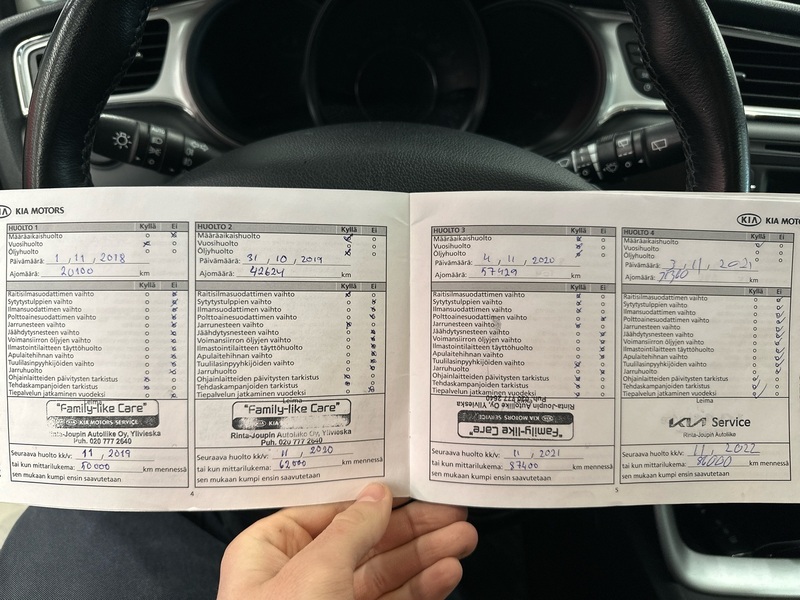 KIA MOTORS
HUOLTO 1 Kyllä Ei
Määräaikaishuolto
Vuosihuolto
Öljyhuolto
Päivämäärä: 1 , 11 , 2018
Ajomäärä: 20100 km
Kyllä Ei
Raitisilmasuodattimen vaihto
Sytytystulppien vaihto
Ilmansuodattimen vaihto
Polttoainesuodattimen vaihto
Jarrunesteen vaihto
Jäähdytysnesteen vaihto
Voimansiirron öljyjen vaihto
Ilmastointilaitteen täyttöhuolto
Apulaitehihnan vaihto
Tuulilasinpyyhkijöiden vaihto
Jarruhuolto
Ohjainlaitteiden päivitysten tarkistus
Tehdaskampanjoiden tarkistus
Tiepalvelun jatkaminen vuodeksi
Leima
"Family-like Care"
KIA MOTORS SERVICE
Rinta-Joupin Autoliike Oy, Ylivieska
Puh. 020 777 2640
Seuraava huolto kk/v: 11 , 2019
tai kun mittarilukema: 50000 km mennessä
sen mukaan kumpi ensin saavutetaan
4
HUOLTO 2 Kyllä Ei
Määräaikaishuolto
Vuosihuolto
Öljyhuolto
Päivämäärä: 31 , 10 , 2019
Ajomäärä: 42624 km
Kyllä Ei
Raitisilmasuodattimen vaihto
Sytytystulppien vaihto
Ilmansuodattimen vaihto
Polttoainesuodattimen vaihto
Jarrunesteen vaihto
Jäähdytysnesteen vaihto
Voimansiirron öljyjen vaihto
Ilmastointilaitteen täyttöhuolto
Apulaitehihnan vaihto
Tuulilasinpyyhkijöiden vaihto
Jarruhuolto
Ohjainlaitteiden päivitysten tarkistus
Tehdaskampanjoiden tarkistus
Tiepalvelun jatkaminen vuodeksi
Leima
"Family-like Care"
KIA
Rinta-Joupin Autoliike Oy, Ylivieska
Puh. 020 777 2640
Seuraava huolto kk/v: 11 , 2020
tai kun mittarilukema: 62000 km mennessä
sen mukaan kumpi ensin saavutetaan
KIA MOTO
HUOLTO 3 Kyllä Ei
Määräaikaishuolto
Vuosihuolto
Öljyhuolto
Päivämäärä: 4 , 11 , 2020
Ajomäärä: 57429 km
Kyllä Ei
Raitisilmasuodattimen vaihto
Sytytystulppien vaihto
Ilmansuodattimen vaihto
Polttoainesuodattimen vaihto
Jarrunesteen vaihto
Jäähdytysnesteen vaihto
Voimansiirron öljyjen vaihto
Ilmastointilaitteen täyttöhuolto
Apulaitehihnan vaihto
Tuulilasinpyyhkijöiden vaihto
Jarruhuolto
Ohjainlaitteiden päivitysten tarkistus
Tehdaskampanjoiden tarkistus
Tiepalvelun jatkaminen vuodeksi
Puh. 020 777 2640
Rinta-Joupin Autoliike Oy, Ylivieska
KIA MOTORS SERVICE
"Family-like Care"
Seuraava huolto kk/v: 11 , 2021
tai kun mittarilukema: 87400 km mennessä
sen mukaan kumpi ensin saavutetaan
5
HUOLTO 4 Kyllä Ei
Määräaikaishuolto
Vuosihuolto
Öljyhuolto
Päivämäärä: 3 , 11 , 2021
Ajomäärä: km
Kyllä Ei
Raitisilmasuodattimen vaihto
Sytytystulppien vaihto
Ilmansuodattimen vaihto
Polttoainesuodattimen vaihto
Jarrunesteen vaihto
Jäähdytysnesteen vaihto
Voimansiirron öljyjen vaihto
Ilmastointilaitteen täyttöhuolto
Apulaitehihnan vaihto
Tuulilasinpyyhkijöiden vaihto
Jarruhuolto
Ohjainlaitteiden päivitysten tarkistus
Tehdaskampanjoiden tarkistus
Tiepalvelun jatkaminen vuodeksi
Leima
KIA Service
Rinta-Joupin Autoliike
Seuraava huolto kk/v: 11 , 2022
tai kun mittarilukema: 86000 km mennessä
sen mukaan kumpi ensin saavutetaan